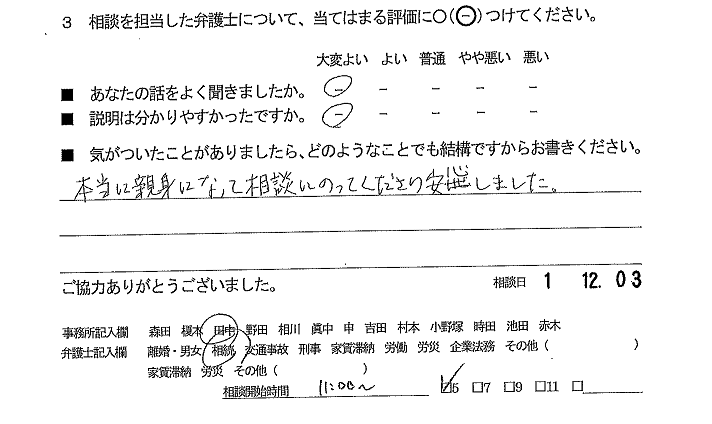 3 相談を担当した弁護士について、当てはまる評価に○(㊀)つけてください。
大変よい よい 普通 やや悪い 悪い
■ あなたの話をよく聞きましたか。 - - - - -
■ 説明は分かりやすかったですか。 - - - - -
■ 気がついたことがありましたら、どのようなことでも結構ですからお書きください。
本当に親身になって相談にのってくださり安心しました。
ご協力ありがとうございました。 相談日 1 12. 03
事務所記入欄 森田 榎本 田中 野田 相川 眞中 申 吉田 村本 小野塚 時田 池田 赤木
弁護士記入欄 離婚・男女 相続 交通事故 刑事 家賃滞納 労働 労災 企業法務 その他 ( )
家賃滞納 労災 その他 ( )
相談開始時間 11:00~ ☑5 □7 □9 □11 □